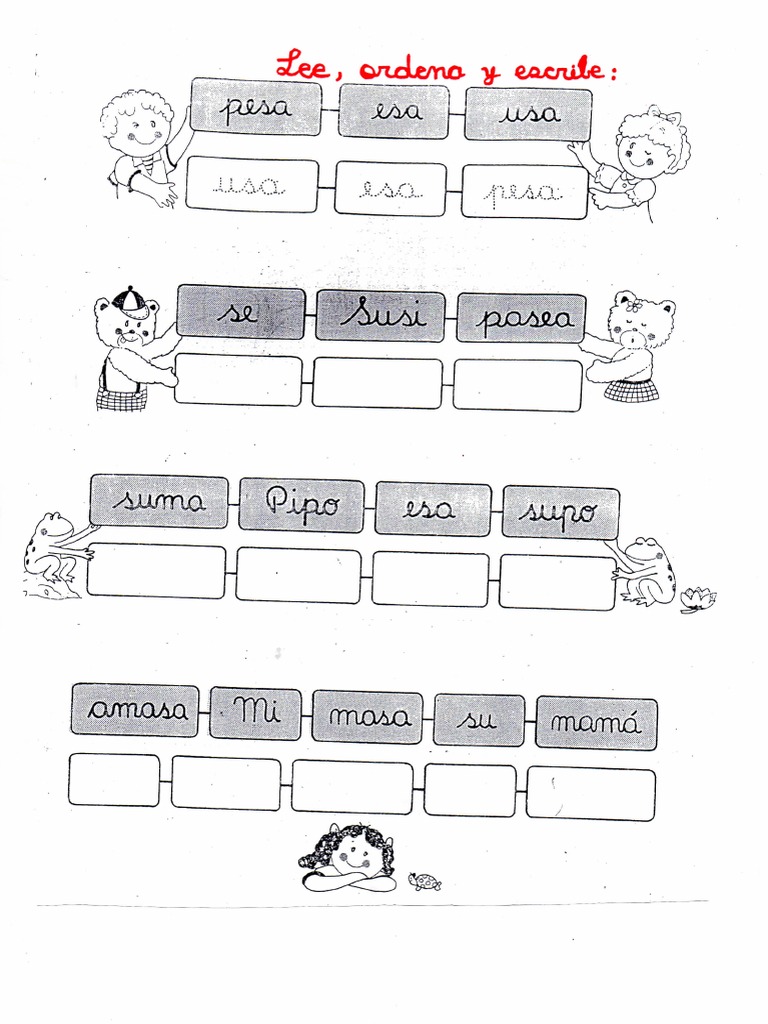 Lee, ordena y escribe:
pesa esa usa
usa esa pesa
se Susi pasea
suma Pipo esa supo
amasa Mi masa su mamá